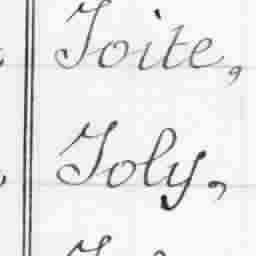 Joite,
Joly,